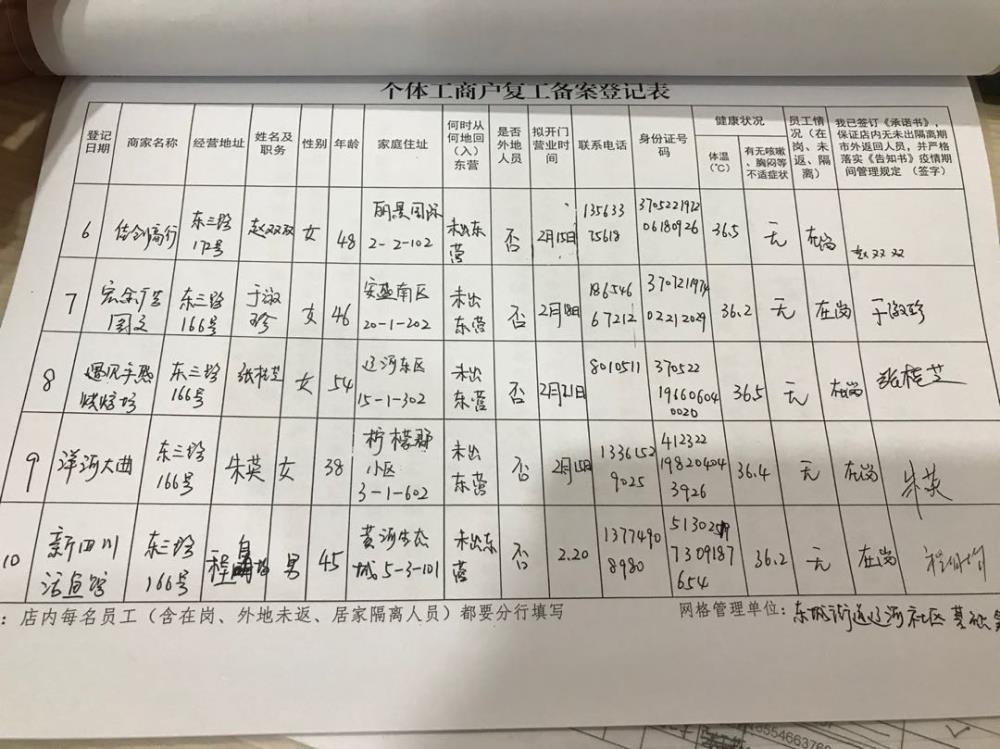 个体工商户复工备案登记表
登记日期 商家名称 经营地址 姓名及职务 性别 年龄 家庭住址 何时从何地回（入）东营 是否外地人员 拟开门营业时间 联系电话 身份证号码 健康状况 体温（℃） 有无咳嗽、胸闷等不适症状 员工情况（在岗、未返、隔离） 我已签订《承诺书》，保证店内无未出隔离期市外返回人员，并严格落实《告知书》疫情期间管理规定 （签字）
6 商行 东三路17号 赵双双 女 48 丽景国际2-2-102 未出东营 否 2月15日 13563375618 370522197206180926 36.5 无 在岗 赵双双
7 东三路166号 于淑珍 女 46 安盛南区20-1-202 未出东营 否 2月18日 18654667212 36.2 无 在岗 于淑珍
8 东三路166号 张桂芝 女 54 辽河东区15-1-302 未出东营 否 2月21日 8010511 370522196606040020 36.5 无 在岗 张桂芝
9 洋河大曲 东三路166号 朱英 女 38 柠檬郡小区3-1-602 未出东营 否 2月15日 13361529025 412322198204043926 36.4 无 在岗 朱英
10 新四川活鱼馆 东三路166号 程 男 45 黄河生态城5-3-101 未出东营 否 2.20 13774908980 36.2 无 在岗
：店内每名员工（含在岗、外地未返、居家隔离人员）都要分行填写 网格管理单位：东城街道辽河社区